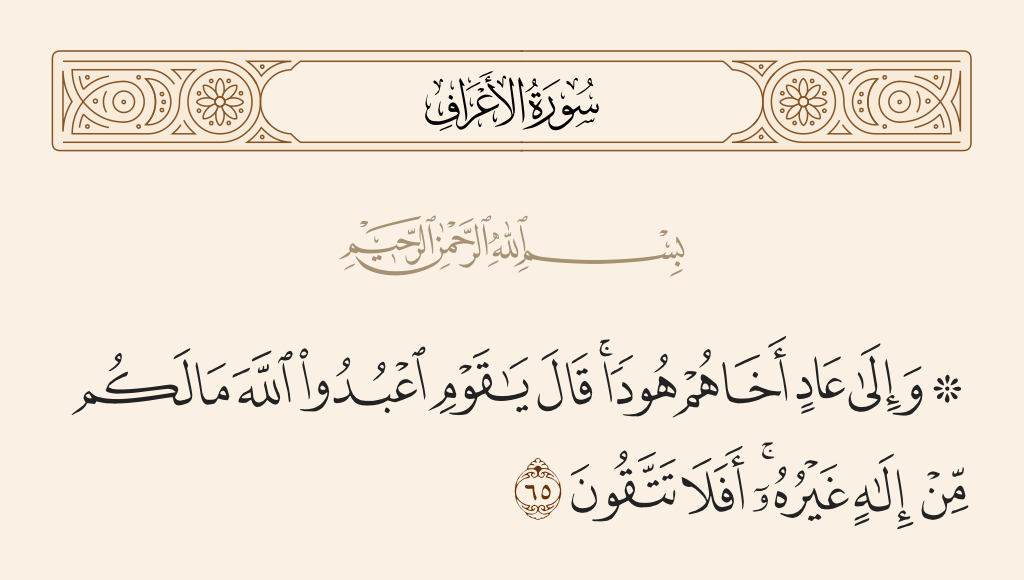 سُورَةُ الأَعْرَافِ
بِسْمِ ٱللَّهِ ٱلرَّحْمَٰنِ ٱلرَّحِيمِ
۞ وَإِلَىٰ عَادٍ أَخَاهُمْ هُودًا ۚ قَالَ يَـٰقَوْمِ ٱعْبُدُوا۟ ٱللَّهَ مَا لَكُم
مِّنْ إِلَـٰهٍ غَيْرُهُۥٓ ۚ أَفَلَا تَتَّقُونَ ٦٥